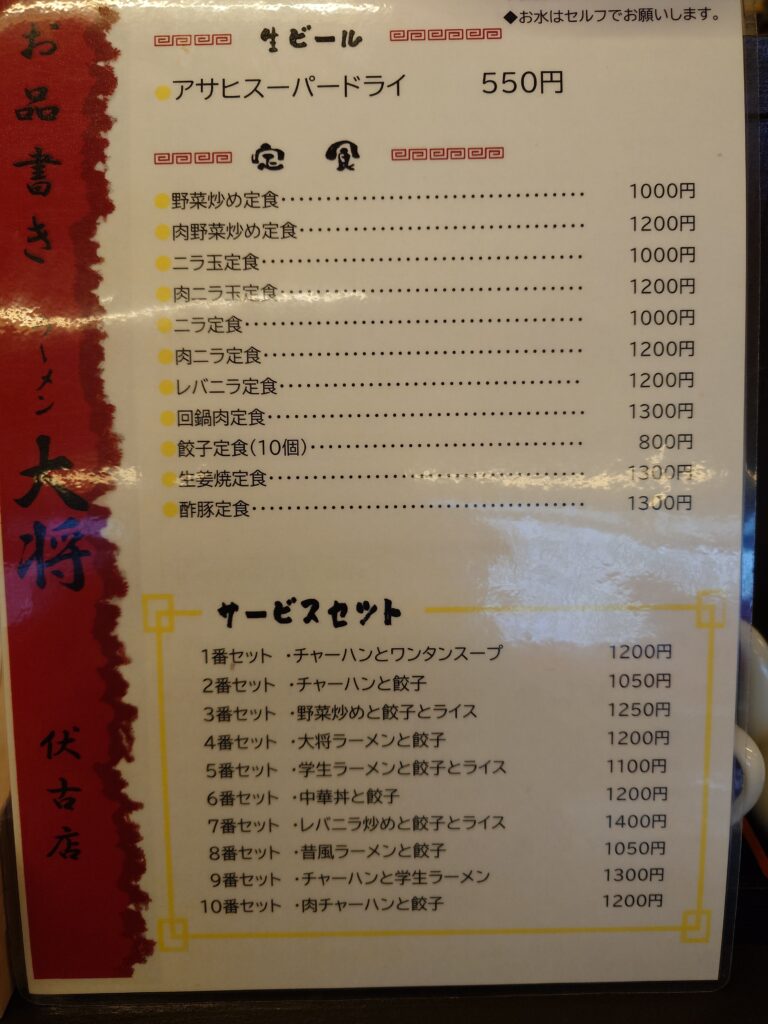 ◆お水はセルフでお願いします。
お品書き
ラーメン
大将
伏古店
生ビール
アサヒスーパードライ 550円
定食
野菜炒め定食 1000円
肉野菜炒め定食 1200円
ニラ玉定食 1000円
肉ニラ玉定食 1200円
ニラ定食 1000円
肉ニラ定食 1200円
レバニラ定食 1200円
回鍋肉定食 1300円
餃子定食(10個) 800円
生姜焼定食 1300円
酢豚定食 1300円
サービスセット
1番セット ・チャーハンとワンタンスープ 1200円
2番セット ・チャーハンと餃子 1050円
3番セット ・野菜炒めと餃子とライス 1250円
4番セット ・大将ラーメンと餃子 1200円
5番セット ・学生ラーメンと餃子とライス 1100円
6番セット ・中華丼と餃子 1200円
7番セット ・レバニラ炒めと餃子とライス 1400円
8番セット ・昔風ラーメンと餃子 1050円
9番セット ・チャーハンと学生ラーメン 1300円
10番セット ・肉チャーハンと餃子 1200円